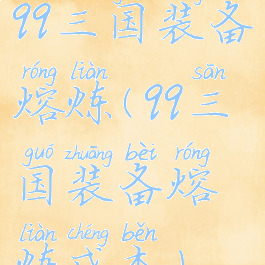 99三国装备
róng liàn sān
熔炼(99三
guó zhuāng bèi róng
国装备熔
liàn chéng běn
炼成本)